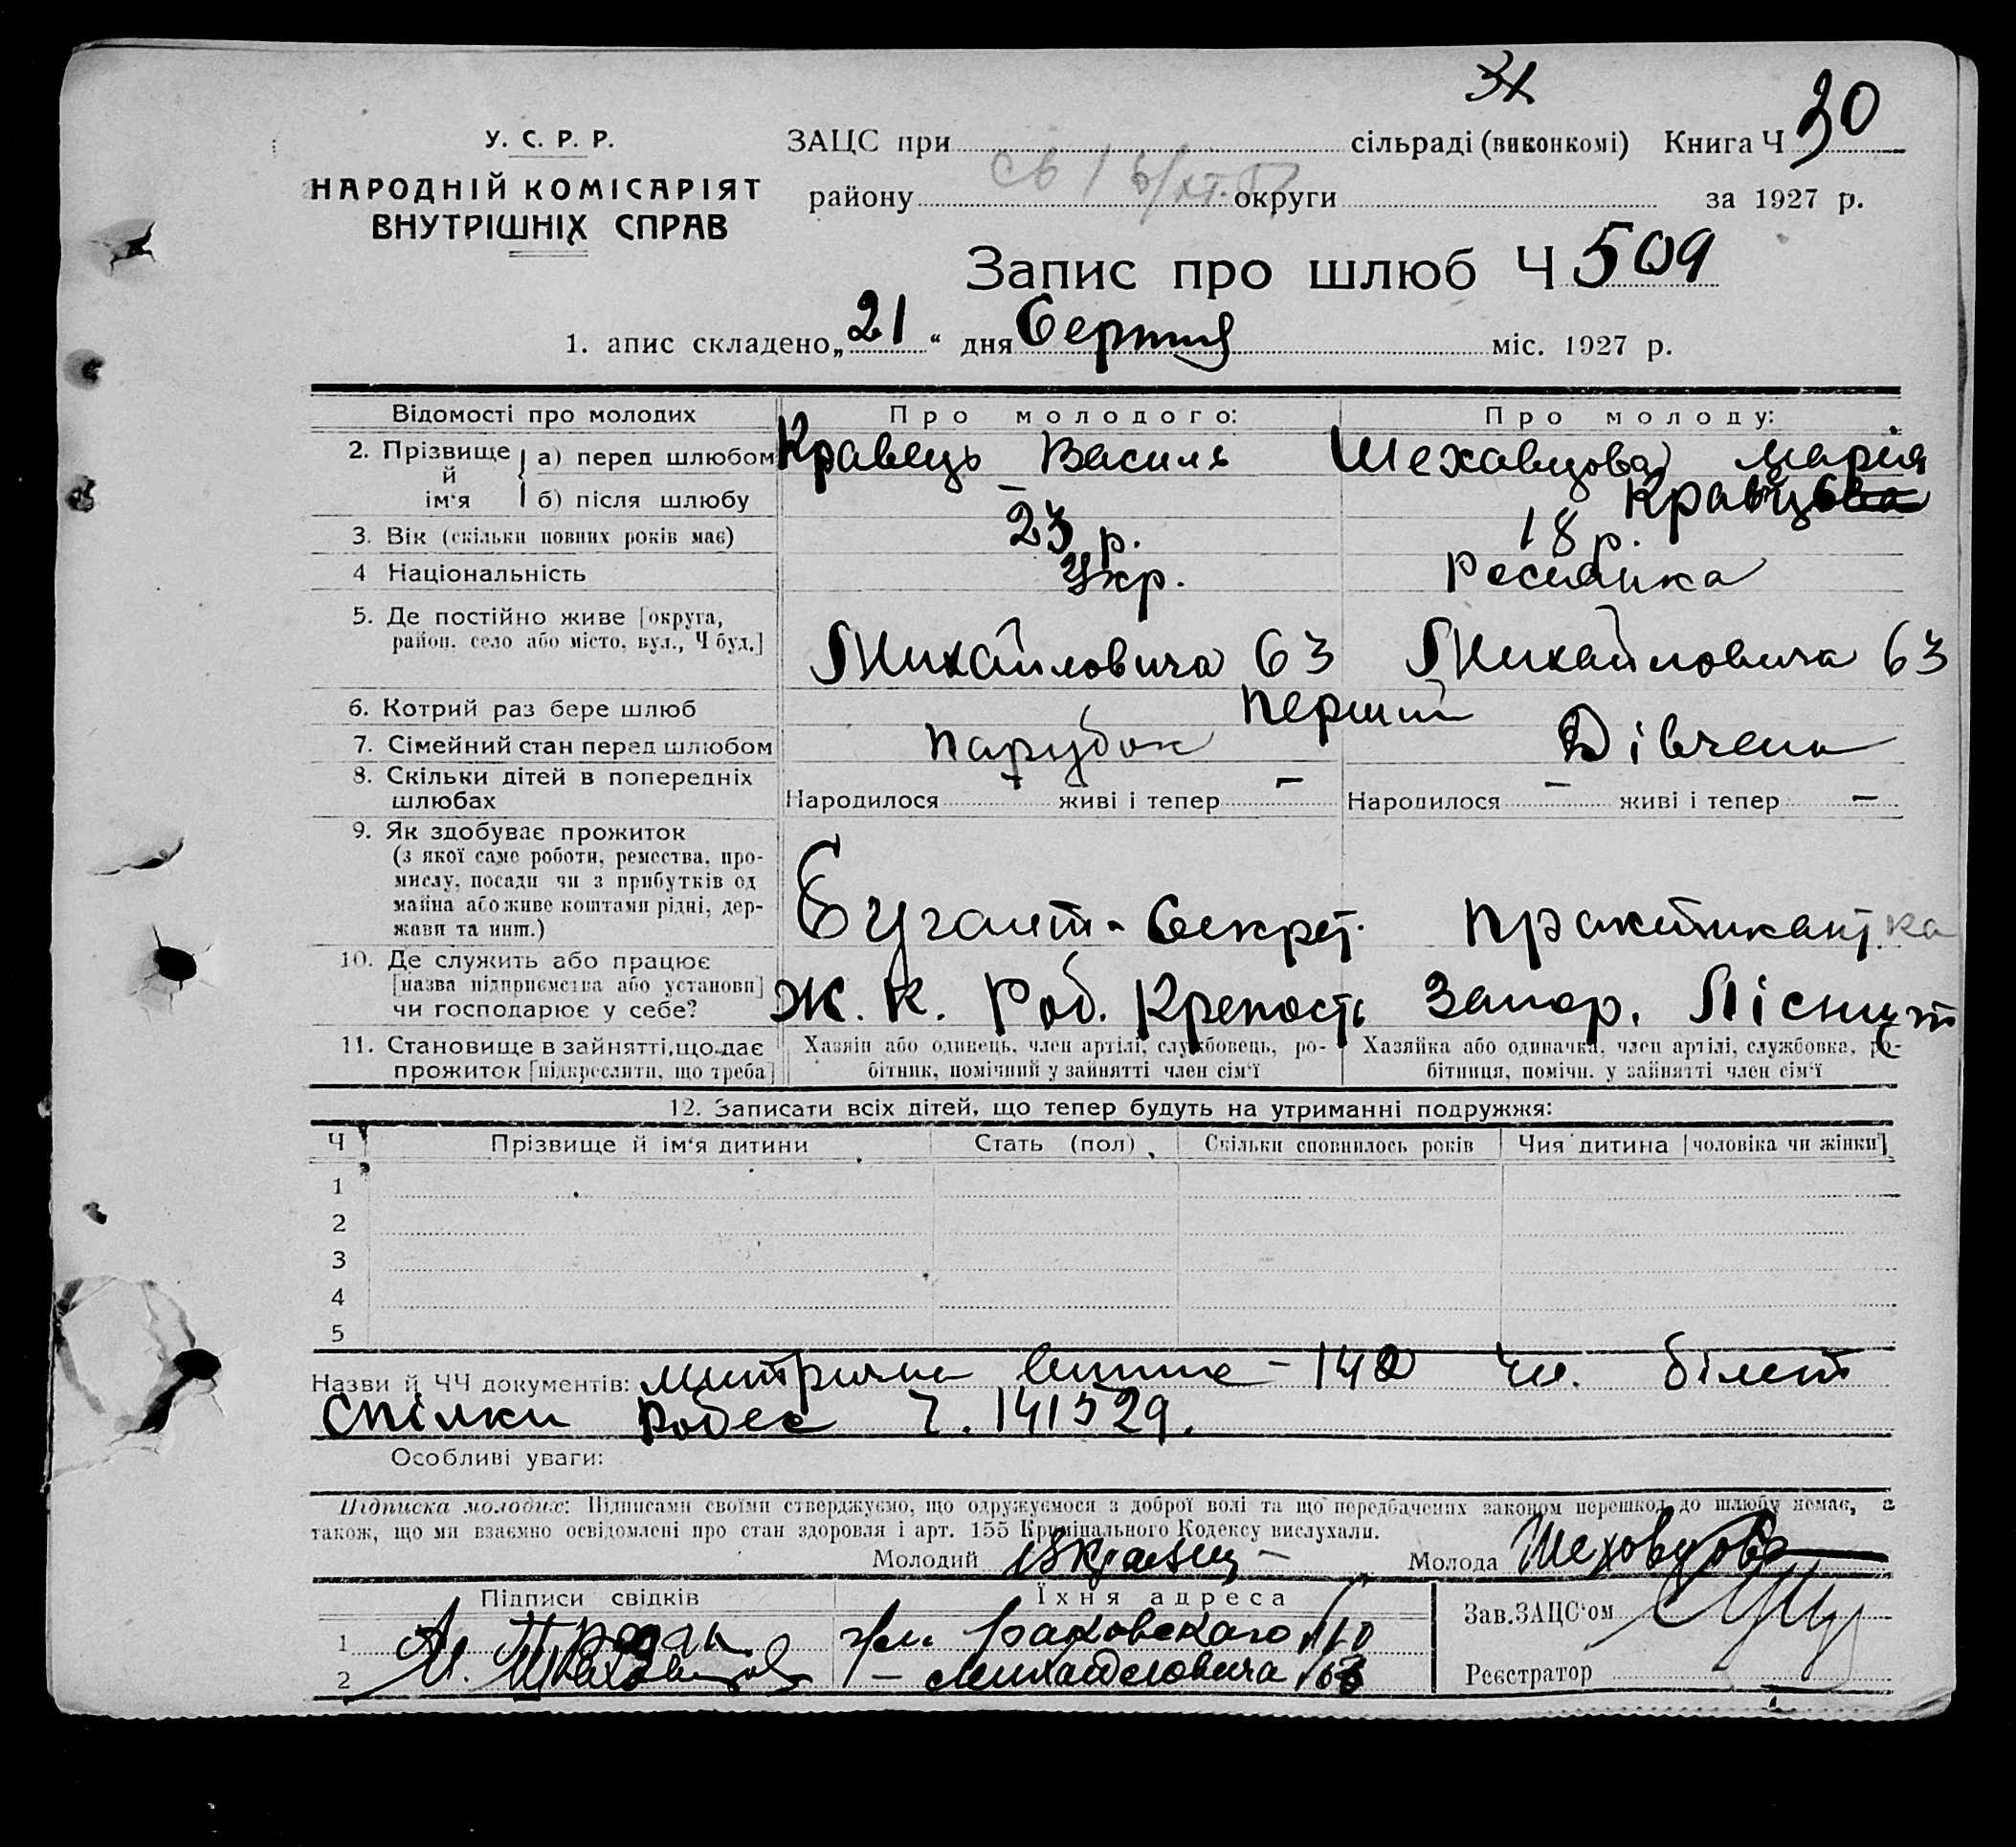 У. С. Р. Р.
НАРОДНІЙ КОМІСАРІЯТ
ВНУТРІШНІХ СПРАВ
ЗАЦС при сільраді (виконкомі) Книга Ч 30
району округи за 1927 р.
Запис про шлюб Ч 509
1. апис складено „21“ дня Серпня міс. 1927 р.
Відомості про молодих Про молодого: Про молоду:
2. Прізвище й ім‘я а) перед шлюбом Кравець Василь Шехавцова Марія
б) після шлюбу — Кравцова
3. Вік (скільки повних років має) 23 р. 18 р.
4 Національність Укр. Росіянка
5. Де постійно живе [округа,
район, село або місто, вул., Ч буд.] Михайловича 63 Михайловича 63
6. Котрий раз бере шлюб перший
7. Сімейний стан перед шлюбом парубок Дівчена
8. Скільки дітей в попередніх
шлюбах Народилося — живі і тепер — Народилося — живі і тепер —
9. Як здобуває прожиток
(з якої саме роботи, ремества, про-
мислу, посади чи з прибутків од
майна або живе коштами рідні, дер-
жави та инш.) Бугалт-Секрет. практикантка
10. Де служить або працює
[назва підприємства або установи]
чи господарює у себе? Ж. К. Роб. Крепость Запор.
11. Становище в зайнятті, що дає
прожиток [підкреслити, що треба]
Хазяін або одинець, член артілі, службовець, ро-
бітник, помічний у зайнятті член сім‘ї
Хазяйка або одиначка, член артілі, службовка, ро-
бітниця, помічн. у зайнятті член сім‘ї
12. Записати всіх дітей, що тепер будуть на утриманні подружжя:
Ч Прізвище й ім‘я дитини Стать (пол) Скільки сповнилось років Чия дитина [чоловіка чи жінки]
1
2
3
4
5
Назви й ЧЧ документів: метрична - 142 чл. білет
Спілки Робос Ч. 141529.
Особливі уваги:
Підписка молодих: Підписами своїми стверджуємо, що одружуємося з доброї волі та що передбачених законом перешкод до шлюбу немає, а
також, що ми взаємно освідомлені про стан здоровля і арт. 155 Кримінального Кодексу вислухали.
Молодий ВКравец Молода Шеховцова
Підписи свідків Їхня адреса Зав. ЗАЦС‘ом
1 Раковскаго
2 — Михайловича 63
Реєстратор